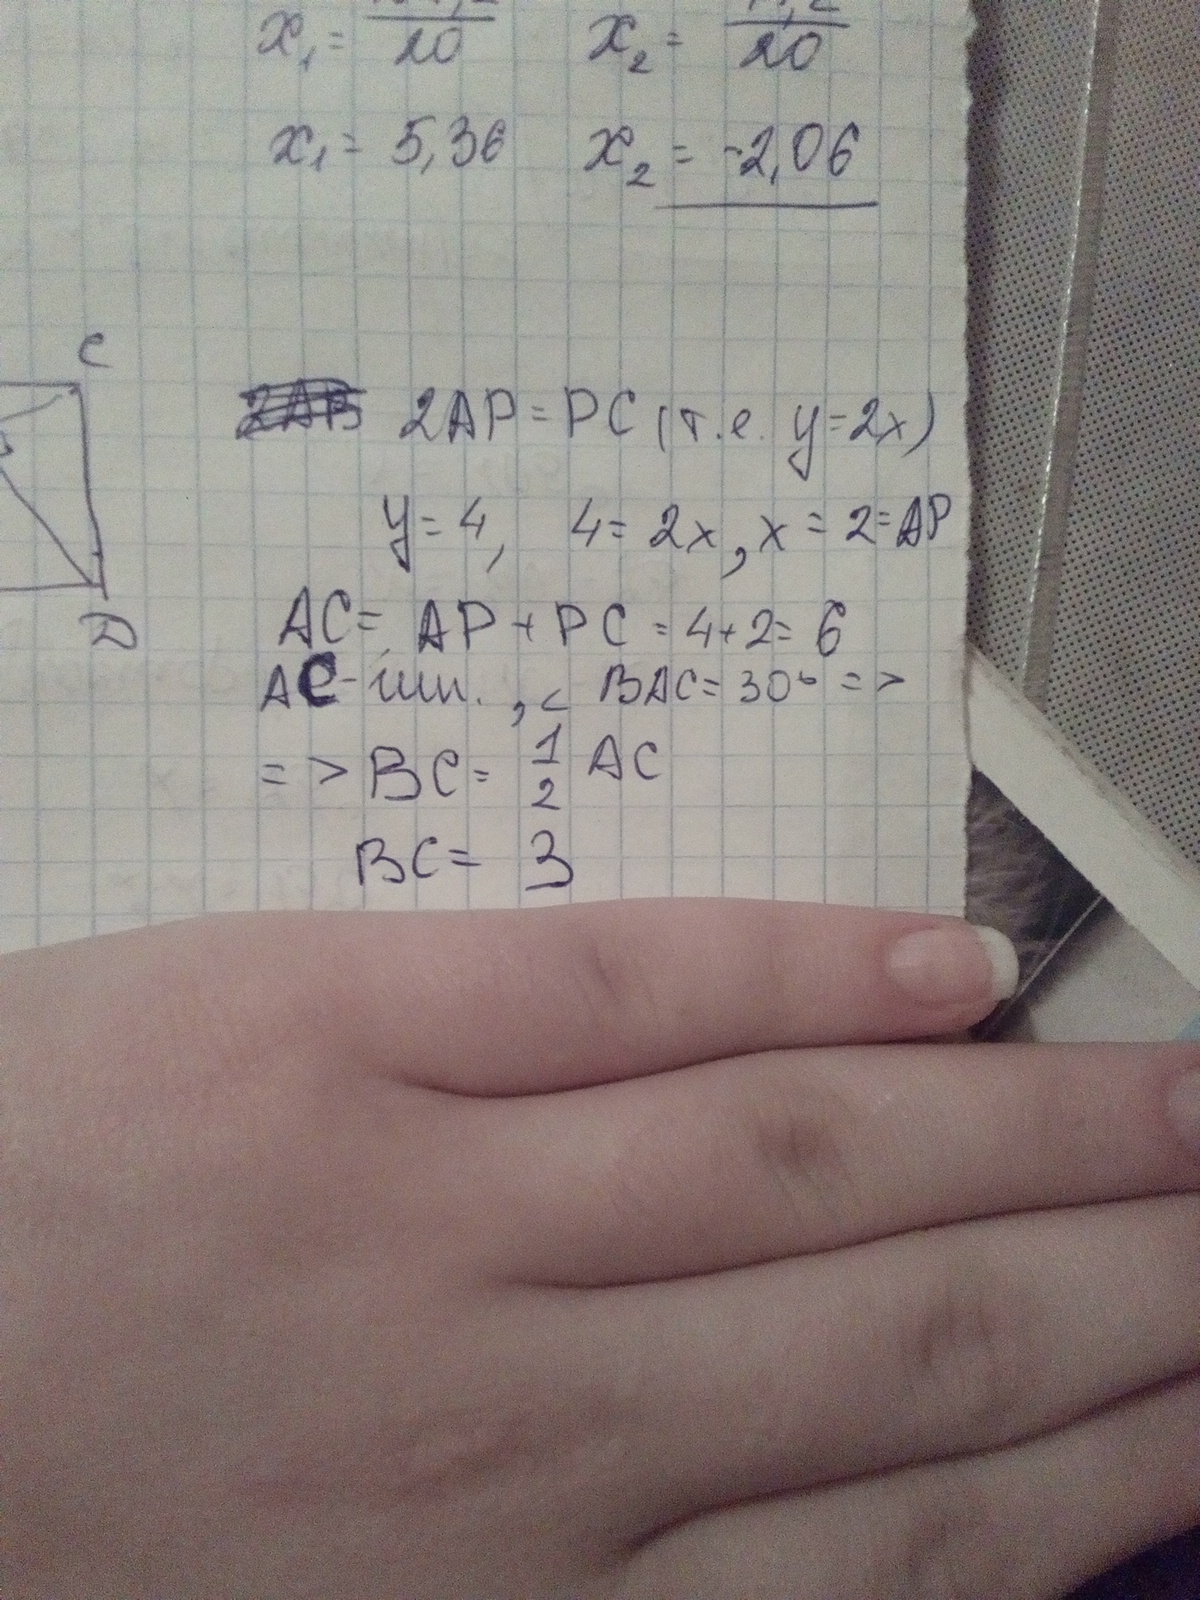 x₁ = /20 x₂ = /20
x₁ = 5,36 x₂ = -2,06
C
2AB 2AP = PC (т.е. y=2x)
y = 4, 4 = 2x, x = 2 = AP
D
AC = AP + PC = 4+2 = 6
AC - гип., < BAC = 30° =>
=> BC = 1/2 AC
BC = 3